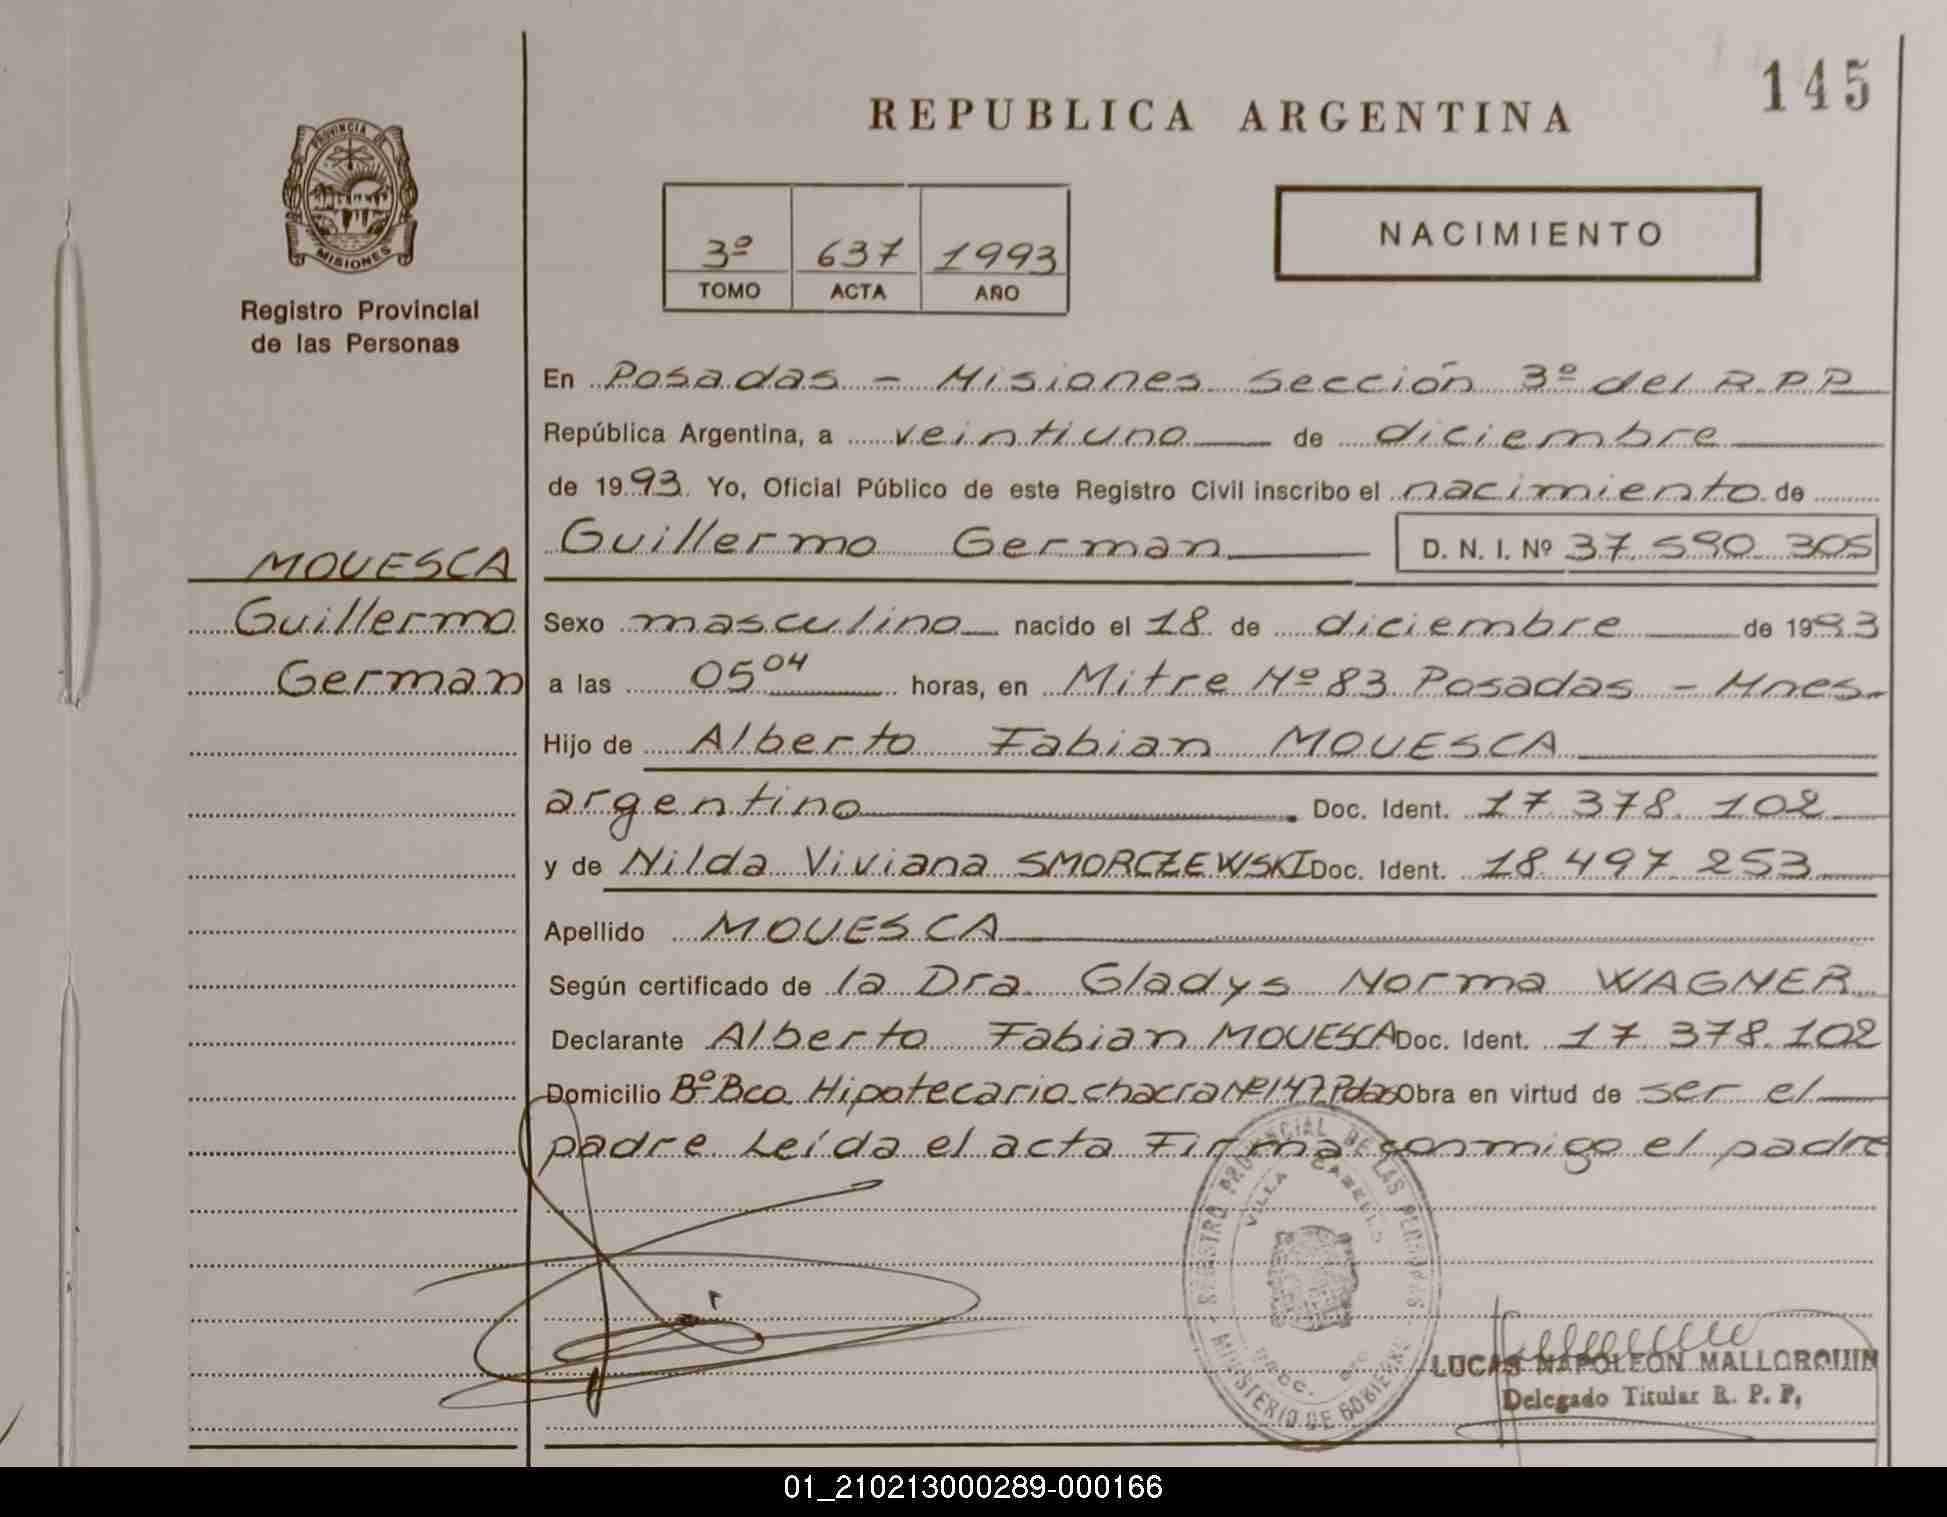 145
REPUBLICA ARGENTINA
PROVINCIA DE
MISIONES
Registro Provincial
de las Personas
3º 637 1993
TOMO ACTA AÑO
NACIMIENTO
En Posadas - Misiones Sección 3º del R.P.P
República Argentina, a veintiuno de diciembre
de 1993. Yo, Oficial Público de este Registro Civil inscribo el nacimiento de
MOUESCA
Guillermo
German
Guillermo German D. N. I. Nº 37.590.305
Sexo masculino nacido el 18 de diciembre de 1993
a las 05 04 horas, en Mitre Nº 83 Posadas - Mnes.
Hijo de Alberto Fabian MOUESCA
argentino Doc. Ident. 17.378.102
y de Nilda Viviana SMORCZEWSKI Doc. Ident. 18.497.253
Apellido MOUESCA
Según certificado de la Dra. Gladys Norma WAGNER
Declarante Alberto Fabian MOUESCA Doc. Ident. 17.378.102
Domicilio Bº Bco. Hipotecario chacra Nº 147 Pdas Obra en virtud de ser el
padre Leída el acta Firma conmigo el padre
REGISTRO PROVINCIAL DE LAS PERSONAS
VILLA CABELLO
MINISTERIO DE GOBIERNO
LUCAS NAPOLEON MALLORQUIN
Delegado Titular R. P. P.
01_210213000289-000166